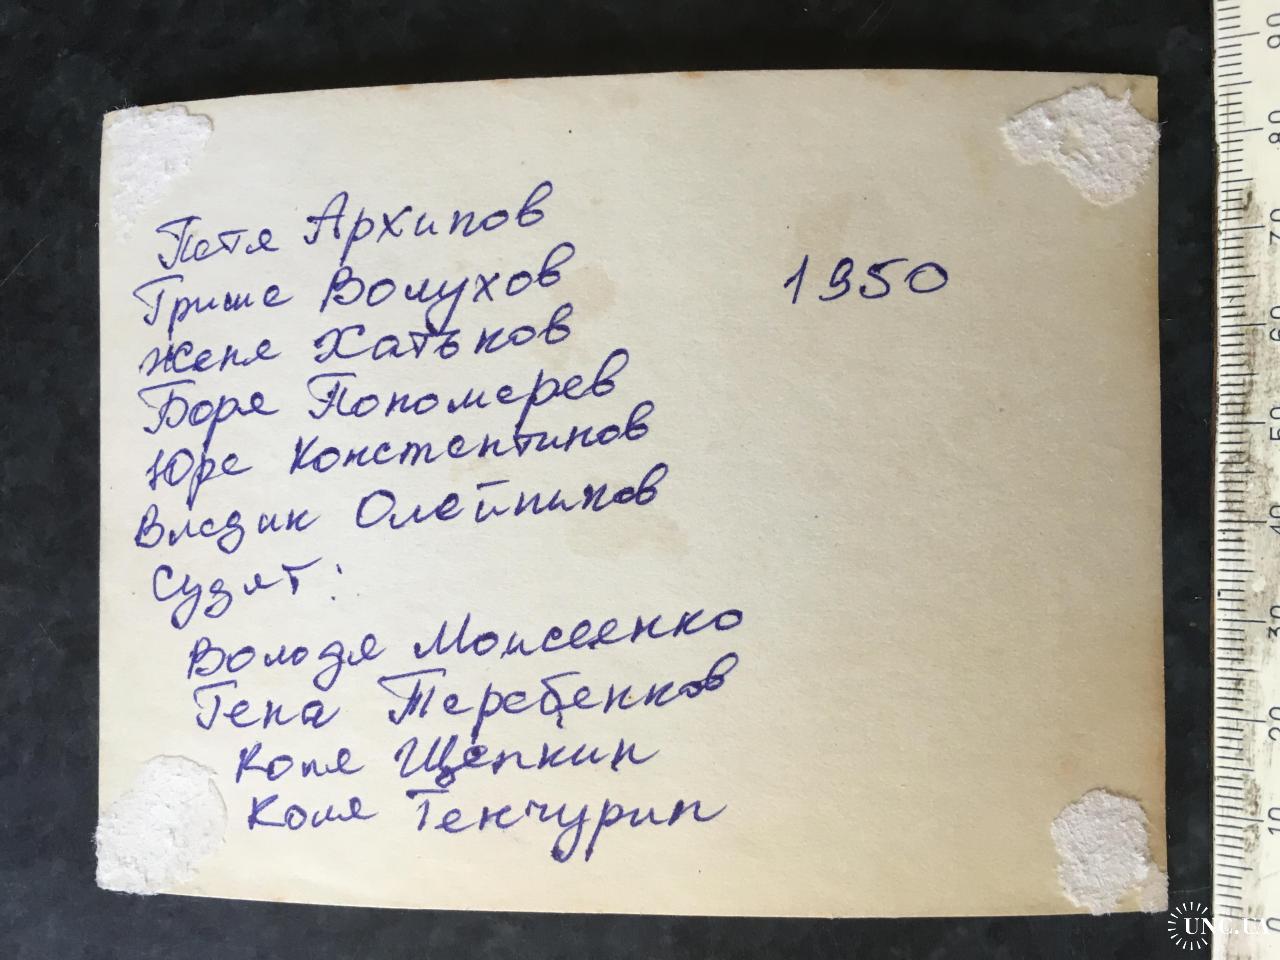 Петя Архипов
Гриша Волухов
1950
Женя Хатьков
Боря Пономарев
Юра Константинов
Владик Олейников
Судят:
Володя Моисеенко
Гена Теребенков
Коля Щепкин
Коля Генчурин
90
80
70
60
50
40
30
20
10
0
UNC.UA